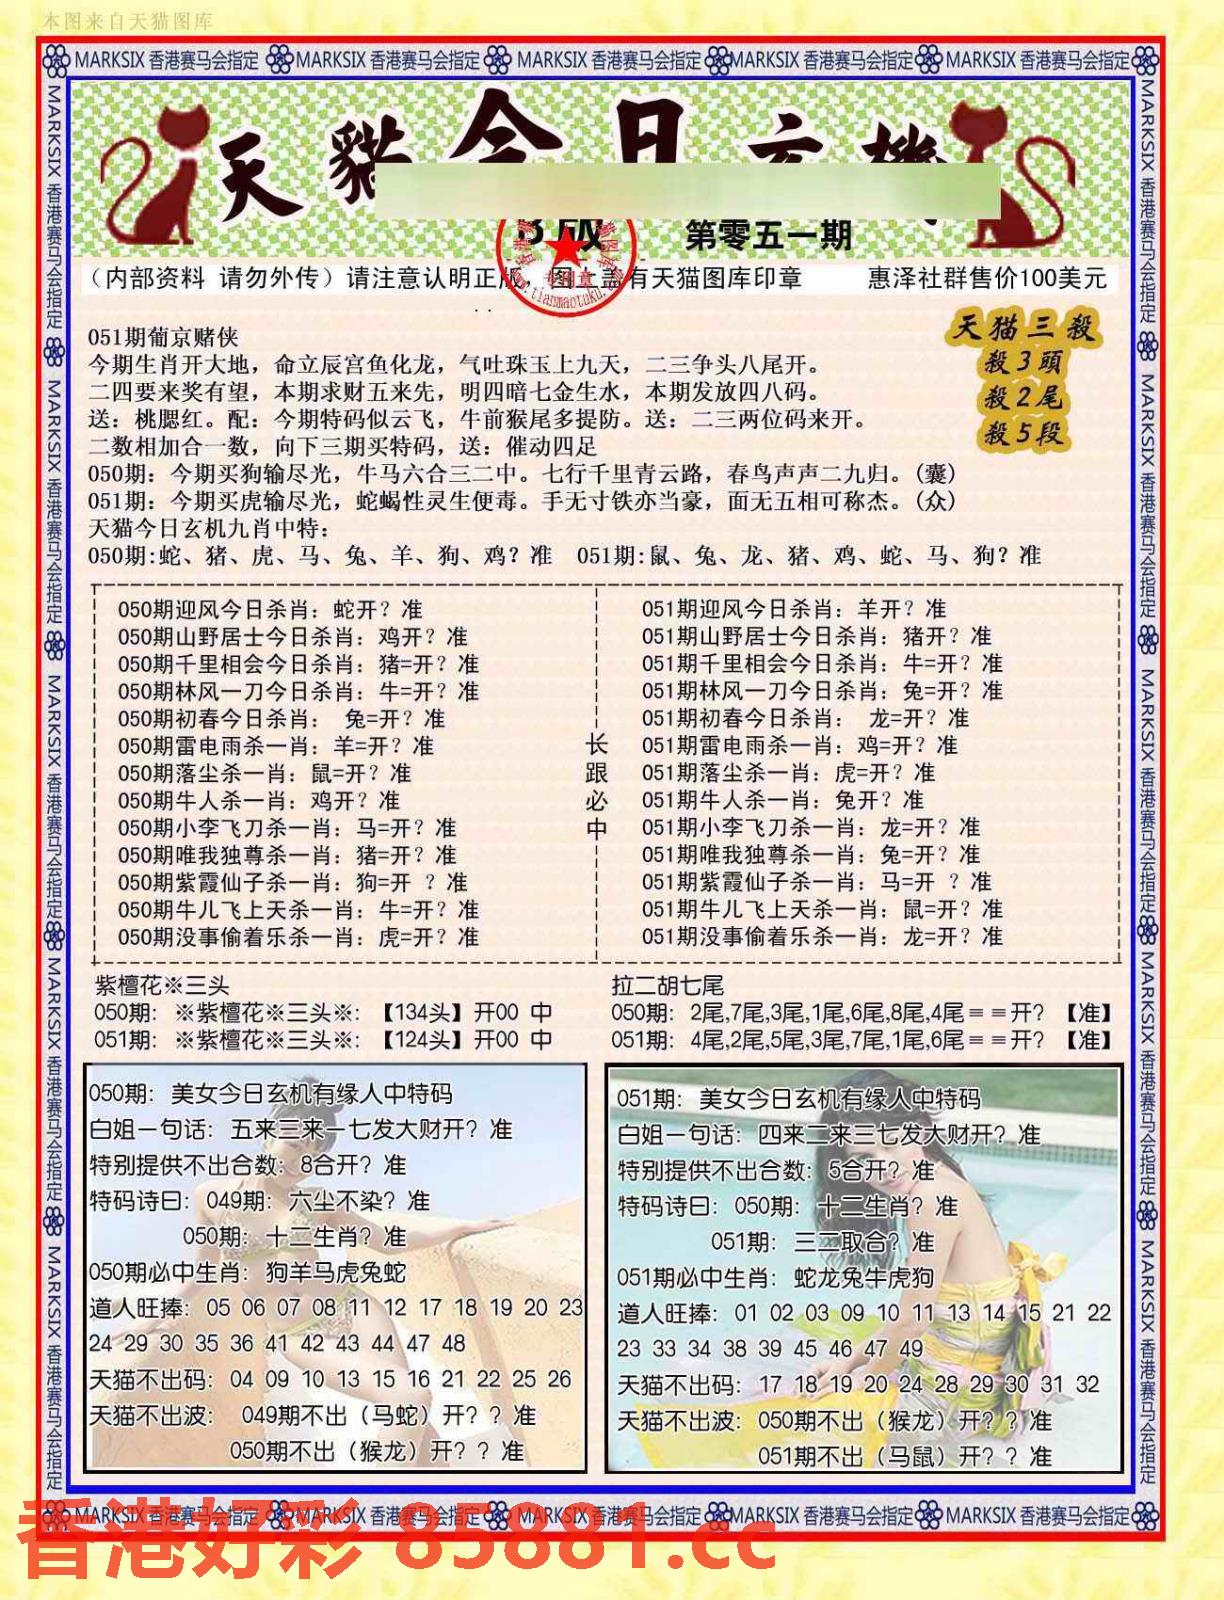 本图来自天猫图库
MARKSIX 香港赛马会指定 MARKSIX 香港赛马会指定 MARKSIX 香港赛马会指定 MARKSIX 香港赛马会指定 MARKSIX 香港赛马会指定
天貓今日玄機
B版 第零五一期
（内部资料 请勿外传）请注意认明正版 图上盖有天猫图库印章 惠泽社群售价100美元
天猫三殺
殺3頭
殺2尾
殺5段
051期葡京赌侠
今期生肖开大地，命立辰宫鱼化龙，气吐珠玉上九天，二三争头八尾开。
二四要来奖有望，本期求财五来先，明四暗七金生水，本期发放四八码。
送：桃腮红。配：今期特码似云飞，牛前猴尾多提防。送：二三两位码来开。
二数相加合一数，向下三期买特码，送：催动四足
050期：今期买狗输尽光，牛马六合三二中。七行千里青云路，春鸟声声二九归。(囊)
051期：今期买虎输尽光，蛇蝎性灵生便毒。手无寸铁亦当豪，面无五相可称杰。(众)
天猫今日玄机九肖中特：
050期:蛇、猪、虎、马、兔、羊、狗、鸡？准 051期:鼠、兔、龙、猪、鸡、蛇、马、狗？准
050期迎风今日杀肖：蛇开？准
050期山野居士今日杀肖：鸡开？准
050期千里相会今日杀肖：猪=开？准
050期林风一刀今日杀肖：牛=开？准
050期初春今日杀肖： 兔=开？准
050期雷电雨杀一肖：羊=开？准
050期落尘杀一肖：鼠=开？准
050期牛人杀一肖：鸡开？准
050期小李飞刀杀一肖：马=开？准
050期唯我独尊杀一肖：猪=开？准
050期紫霞仙子杀一肖：狗=开 ？准
050期牛儿飞上天杀一肖：牛=开？准
050期没事偷着乐杀一肖：虎=开？准
长
跟
必
中
051期迎风今日杀肖：羊开？准
051期山野居士今日杀肖：猪开？准
051期千里相会今日杀肖：牛=开？准
051期林风一刀今日杀肖：兔=开？准
051期初春今日杀肖： 龙=开？准
051期雷电雨杀一肖：鸡=开？准
051期落尘杀一肖：虎=开？准
051期牛人杀一肖：兔开？准
051期小李飞刀杀一肖：龙=开？准
051期唯我独尊杀一肖：兔=开？准
051期紫霞仙子杀一肖：马=开 ？准
051期牛儿飞上天杀一肖：鼠=开？准
051期没事偷着乐杀一肖：龙=开？准
紫檀花※三头
050期：※紫檀花※三头※：【134头】开00 中
051期：※紫檀花※三头※：【124头】开00 中
拉二胡七尾
050期：2尾,7尾,3尾,1尾,6尾,8尾,4尾＝＝开？【准】
051期：4尾,2尾,5尾,3尾,7尾,1尾,6尾＝＝开？【准】
050期：美女今日玄机有缘人中特码
白姐一句话：五来三来一七发大财开？准
特别提供不出合数：8合开？准
特码诗曰：049期：六尘不染？准
050期：十二生肖？准
050期必中生肖：狗羊马虎兔蛇
道人旺捧：05 06 07 08 11 12 17 18 19 20 23
24 29 30 35 36 41 42 43 44 47 48
天猫不出码：04 09 10 13 15 16 21 22 25 26
天猫不出波： 049期不出（马蛇）开？？准
050期不出（猴龙）开？？准
051期：美女今日玄机有缘人中特码
白姐一句话：四来二来三七发大财开？准
特别提供不出合数：5合开？准
特码诗曰：050期：十二生肖？准
051期：三二取合？准
051期必中生肖：蛇龙兔牛虎狗
道人旺捧：01 02 03 09 10 11 13 14 15 21 22
23 33 34 38 39 45 46 47 49
天猫不出码：17 18 19 20 24 28 29 30 31 32
天猫不出波：050期不出（猴龙）开？？准
051期不出（马鼠）开？？准
MARKSIX 香港赛马会指定 MARKSIX 香港赛马会指定 MARKSIX 香港赛马会指定 MARKSIX 香港赛马会指定 MARKSIX 香港赛马会指定
MARKSIX 香港赛马会指定 MARKSIX 香港赛马会指定 MARKSIX 香港赛马会指定 MARKSIX 香港赛马会指定 MARKSIX 香港赛马会指定
MARKSIX 香港赛马会指定 MARKSIX 香港赛马会指定 MARKSIX 香港赛马会指定 MARKSIX 香港赛马会指定 MARKSIX 香港赛马会指定
香港好彩 85881.cc